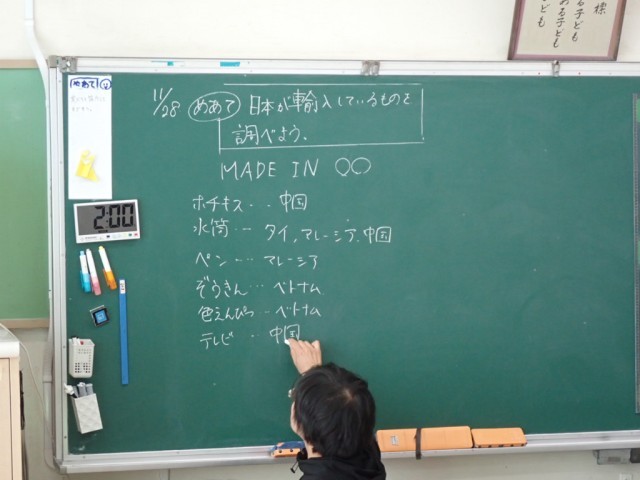 11/28 めあて 日本が輸入しているものを
調べよう。
MADE IN ○○
ホチキス… 中国
水筒… タイ、マレーシア、中国
ペン… マレーシア
ぞうきん… ベトナム
色えんぴつ… ベトナム
テレビ… 中国
めあて
2:00
標
子ども
ある子ども
ども